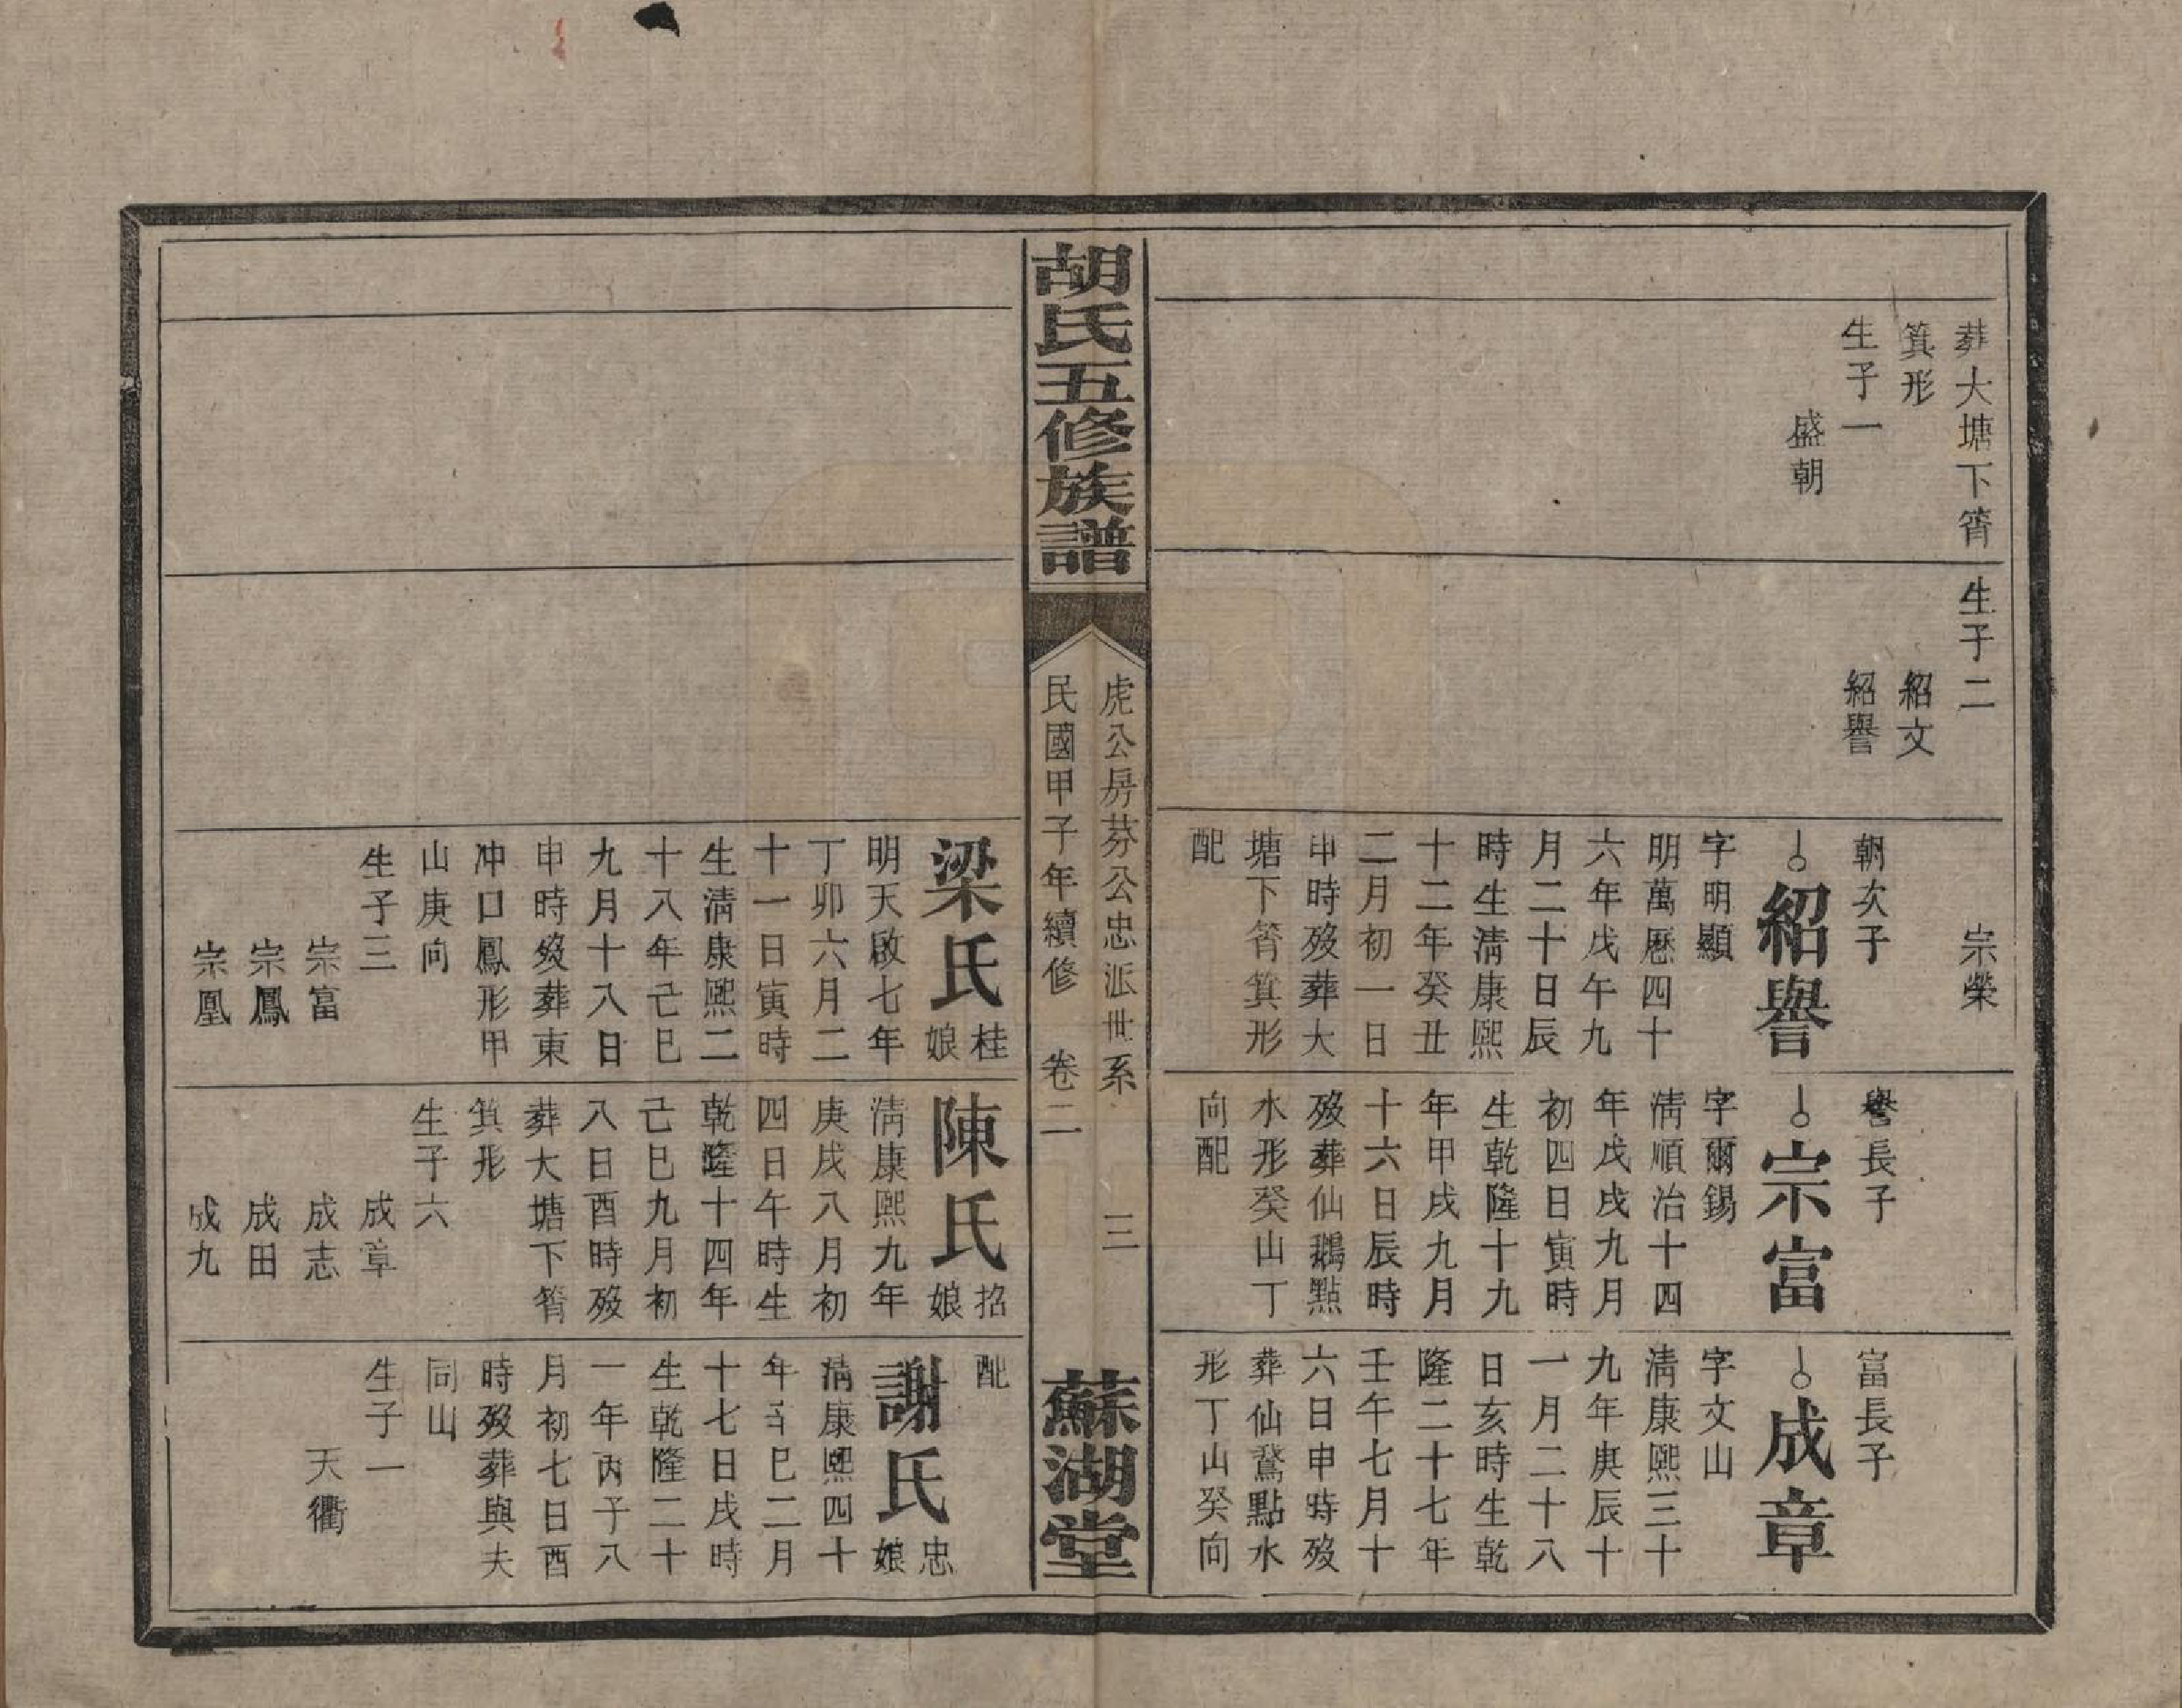 葬大塘下筲
箕形
生子一
盛朝
生子二
紹文
紹譽
宗榮
朝次子
紹譽
字明顯
明萬曆四十
六年戊午九
月二十日辰
時生淸康熙
十二年癸丑
二月初一日
申時歿葬大
塘下筲箕形
配
譽長子
宗富
字爾錫
淸順治十四
年戊戌九月
初四日寅時
生乾隆十九
年甲戌九月
十六日辰時
歿葬仙鵝點
水形癸山丁
向配
富長子
成章
字文山
淸康熙三十
九年庚辰十
一月二十八
日亥時生乾
隆二十七年
壬午七月十
六日申時歿
葬仙鵞點水
形丁山癸向
胡氏五修族譜
虎公房芬公忠派世系 三
民國甲子年續修 卷二
蘇湖堂
梁氏桂娘
明天啟七年
丁卯六月二
十一日寅時
生淸康熙二
十八年己巳
九月十八日
申時歿葬東
冲口鳳形甲
山庚向
生子三
宗富
宗鳳
宗凰
陳氏招娘
淸康熙九年
庚戌八月初
四日午時生
乾隆十四年
己巳九月初
八日酉時歿
葬大塘下筲
箕形
生子六
成章
成志
成田
成九
配
謝氏忠娘
淸康熙四十
年辛巳二月
十七日戌時
生乾隆二十
一年丙子八
月初七日酉
時歿葬與夫
同山
生子一
天衢